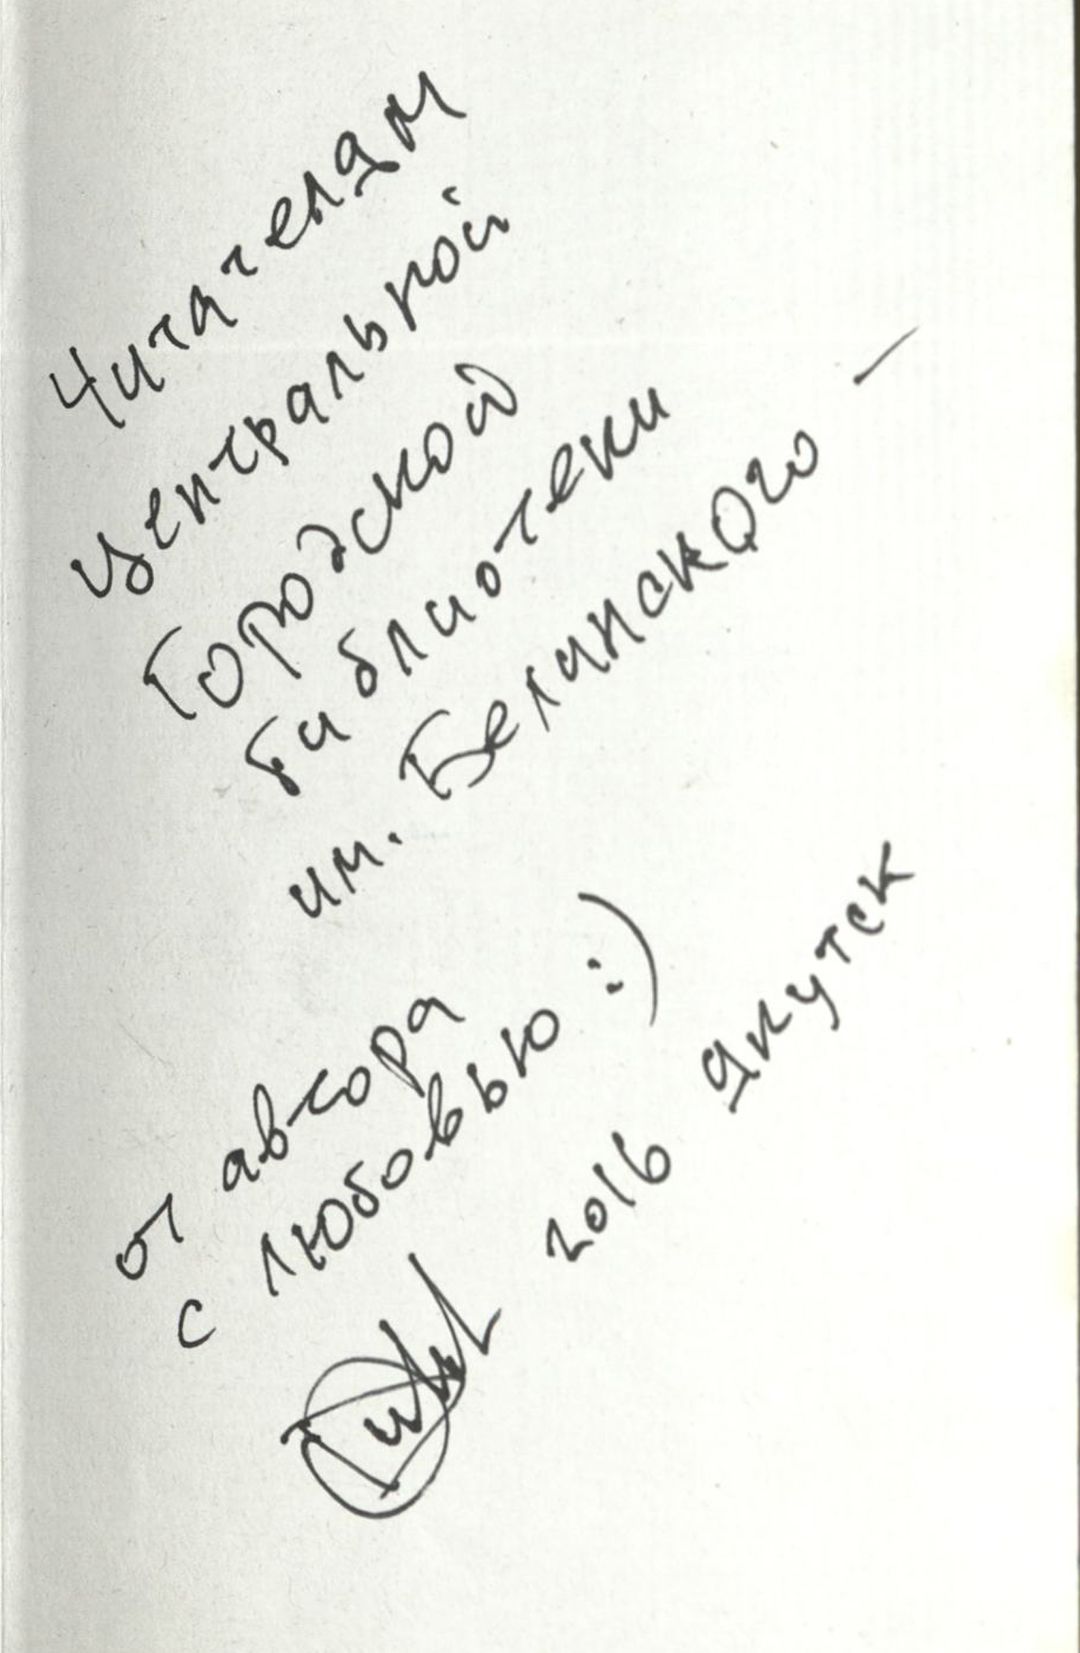 Читателям
центральной
Городской
библиотеки
им. Белинского —
от автора
с любовью :)
2016 Якутск